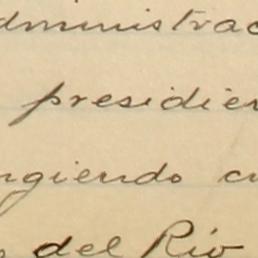 dministrac
presidien
ngiendo cu
del Río